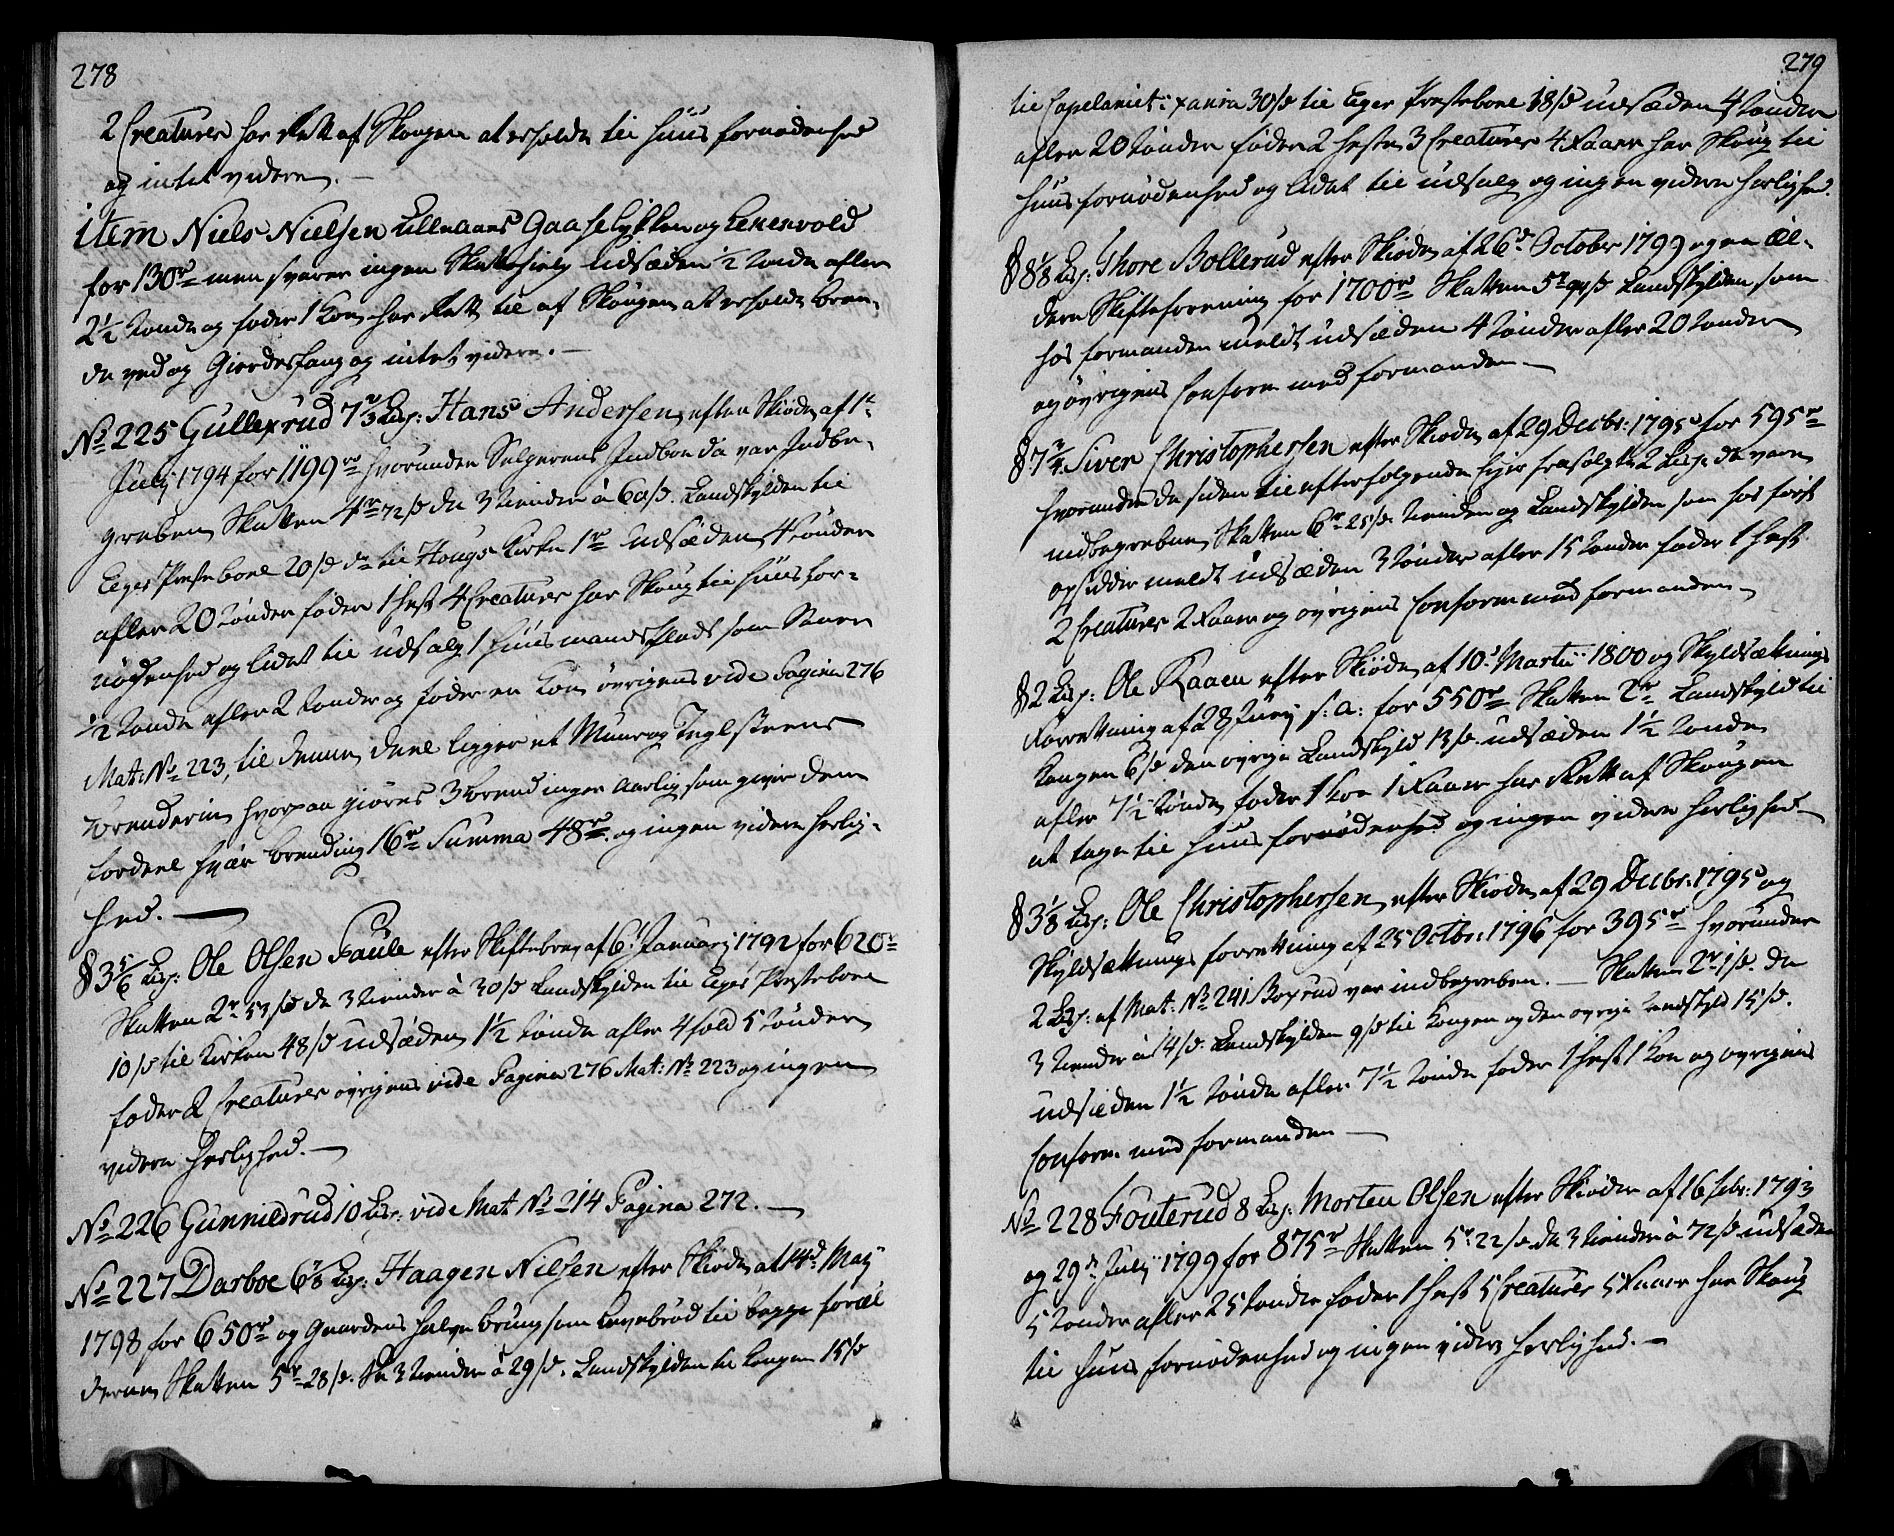 278
2 Creaturer har Rett af Skougen at erholde til Huus fornødenhed
og intet videre. —
item Niels Nielsen Ullemans Gaaseløkken og Lenesvold
for 130 rd men svarer ingen Skattesiely udsæden ½ tønde afler
2½ tønde og føder 1 Koe har Rett til af Skougen at erholde Bren-
de ved og Gierdesfang og intet videre. —
No 225 Gullexrud 7⅔ Lisp: Hans Andersen efter Skiøde af 1te
July 1794 for 1199 rd hvorunder Selgerens Indboe da var Indbe-
greben Skatten 4 r 72 s de 3 tiender à 60 s. Landskylden til
Eger Præstebord 20 s do til Hougs Kirke 1 r udsæden 4 tønder
afler 20 tønder føder 1 hest 4 Creaturer har Skoug til Huusfor-
nødenhed og lidet til udsalg 1 Huusmandsplads som Saaer
½ tønde afler 2 tønder og føder en Koe øvrigens vide Pagina 276
Mat: No 223, til denne deel ligger et Muur og Teglsteens
brenderie hvorpaa giøres 3 brendinger Aarlig som giver dem
fordeel hver brending 16 r Summa 48 r og ingen videre herlig-
hed. —
§ 3⅚ Lisp: Ole Olsen Faule efter Skiftebrev af 6 Januarj 1792 for 620 r
Skatten 2 r 53 s de 3 tiender à 30 s Landskylden til Eger Præsteboel
10 s til Kirken 48 s udsæden 1½ tønde afler 4 fold 5 tønder
føder 2 Creaturer øvrigens vide Pagina 276 Mat: No 223 og ingen
videre herlighed. —
No 226 Gunnildrud 10 Lisp: vide Mat No 214 Pagina 272. —
No 227 Darboe 6⅞ Lisp: Haagen Nielsen efter Skiøde af 14d May
1798 for 650 r og Gaardens halve brug som Levebrød til begge foræl
derne Skatten 5 r 28 s. de 3 tiender à 29 s. Landskylden til Kongen 15 s
279
til Capelaniet i xania 30 s til Eger Præsteboel 18 s udsæden 4 tønder
afler 20 tønder føder 2 heste 3 Creaturer 4 Faarr har Skoug til
Huusfornødenhed og lidet til udsalg og ingen videre herlighed.
§ 8⅛ Lisp: Thore Bollerud efter Skiøde af 26d October 1799 og en Æl-
dere Skifteforening for 1700 r Skatten 5 r 94 s Landskylden som
hos formanden meldt udsæden 4 tønder afler 20 tønder
og øvrigens Conform med formanden —
§ 7¾ Siver Christophersen efter Skiøde af 29 Decbr: 1795 for 595 r
hvorunder de siden til efterfølgende Eyer frasolgte 2 Lisp. da vare
indbegreben Skatten 6 r 25 s. tienden og Landskylden som hos først
opsidder meldt udsæden 3 tønder afler 15 tønder føder 1 hest
2 Creaturer 2 Faarr og øvrigens Conform med formanden —
§ 2 Lisp: Ole Kaaen efter Skiøde af 10d Martii 1800 og Skyldsætnings
Forretning af 28 Junj s: a: for 550 r Skatten 2 r Landskyld til
Kongen 6 s. den øvrige Landskyld 13 s. udsæden 1½ tønde
afler 7½ tønde føder 1 Koe 1 Faarr har Rett af Skougen
at tage til Huus fornødenhed og ingen videre herlighed —
§ 3⅛ Lisp: Ole Christophersen efter Skiøde af 29 Decbr: 1795 og
Skyldsætnings forretning af 25 Octbr: 1796 for 395 r hvorunder
2 Lisp: af Mat: No 241 Boxrud var indbegreben. — Skatten 2 r 1 s. de
3 tiender à 14 s. Landskylden 9 s til Kongen og den øvrige Landskyld 15 s.
udsæden 1½ tønde afler 7½ tønde føder 1 hest 1 Koe og øvrigens
Conform med formanden —
No 228 Fouterud 8 Lisp: Morten Olsen efter Skiøder af 16 Febr: 1793
og 29d July 1799 for 875 r Skatten 5 r 22 s de 3 tiender à 72 s udsæden
5 tønder afler 25 tønder føder 1 hest 5 Creaturer 5 Faarr har Skoug
til Huus fornødenhed og ingen videre herlighed. —